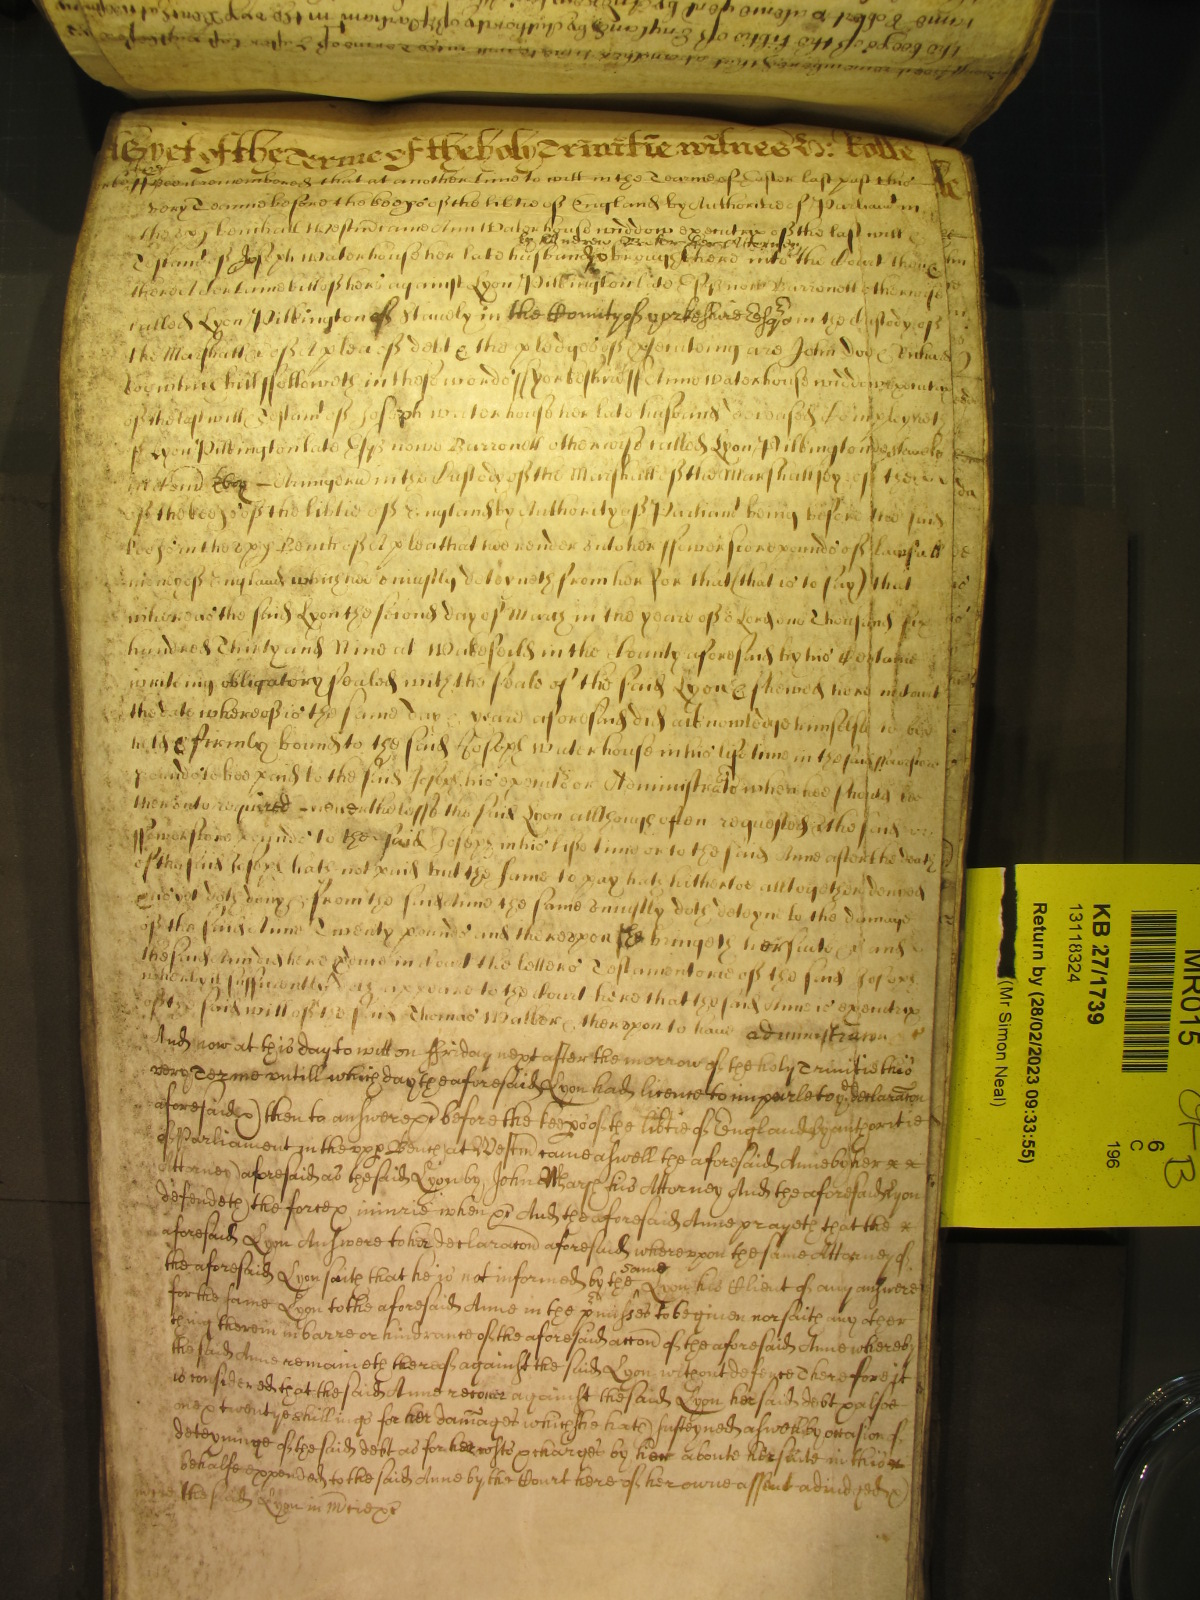 As yet of the Terme of the holy Trinitie witnes H: Rolle
remembred that at another time to witt in the Tearme of Easter last past this
very Tearme before the keepers of the libtie of England by Authoritie of Parliamt in
the upp bench att Westm came Ann Waterhouse widdow executrix of the last will &
by Andrew Baker her Attorney
Testamt of Joseph Waterhouse her late husband & brought here into the Court then &
there A certaine bill of hers against Lyon Pilkington late Esq now Barronett otherwise
called Lyon Pilkington of Stanely in the County of yorkeshire Esqr in the Custody of
the Marshall &c of A plea of debt & the pledges of prsecuteing are John Doe & Richard
Roe which bill followeth in these words ss yorkeshire ss Anne Waterhouse widdow executrix
of the last will & Testamt of Joseph Waterhouse her late husband deceased Complayneth
of Lyon Pilkington late Esq nowe Barronett otherwise called Lyon Pilkington de Stanely
in Com Ebor Armigeru in the Custody of the Marshall of the Marshallsey of the
of the keeprs of the libtie of England by Authority of Parliamt being before the said
keeprs in the upp bench of A plea that hee render unto her ffower score pounds of lawfull
money of England which hee uniustly deteyneth from her for that (that is to say) that
whereas the said Lyon the second day of March in the yeare of or Lord one Thousand six
hundred Thirty and Nine at Wakefeild in the County aforesaid by his Certaine
writeing obligatory sealed with the seale of the said Lyon & shewed here in Court
the date whereof is the same day & yeare aforesaid did acknowledge himselfe to bee
held & firmly bound to the said Joseph Waterhouse in his life time in the said ffowerscore
pounds to bee paid to the said Joseph his executrs or Administratrs when hee should be
thereunto required neverthelesse the said Lyon allthough often requested the said
ffowerscore pounds to the said Joseph in his life time or to the said Anne after the death
of the said Joseph hath not paid but the same to pay hath hitherto alltogether denied
and yet doth deny & from the said Anne the same uniustly doth deteyne to the damage
of the said Anne Twenty pounds and thereupon she bringeth her suite &c and
the said Ann bringeth here into Court the letters Testamentorie of the said Joseph
whereby it sufficiently doth appeare to the Court here that the said Anne is executrix
of the said will of the said Thomas Walker & thereupon to have administracon &c
And now at this day to witt on ffriday next after the morrow of the holy Trinitie this
very Terme untill which day the aforesaid Lyon had licence to imparle to ye declaracon
aforesaid &c) then to answere &c before the keeps of the libtie of England by authoritie
of Parliament in the upp Bench at Westm came aswell the aforesaid Anne by her
Attorney aforesaid as the said Lyon by John Wharf his Attorney And the aforesaid Lyon
defendeth the force & iniurie when &c And the aforesaid Anne prayeth that the
aforesaid Lyon Answere to her declaracon aforesaid whereupon the same Attorney of
the aforesaid Lyon saith that he is not informed by the same Lyon his Client of any answere
for the same Lyon to the aforesaid Anne in the pmisses to be given nor saith any other
thing therein in barre or hindrance of the aforesaid accon of the aforesaid Anne whereby
the said Anne remaineth thereof against the said Lyon without defence Therefore it
is considered that the said Anne recover against the said Lyon her said debt & alsoe
one & twentye shillings for her damages which she hath susteyned aswell by occasion of
deteyninge of the said debt as for her costs & charges by her aboute her suite in this
behalfe expended to the said Anne by the Court here of her owne assent adiudged &c)
And the said Lyon in mcie &c
MR015
6
C
196
KB 27/1739
13118324
Return by (28/02/2023 09:33:55)
(Mr Simon Neal)